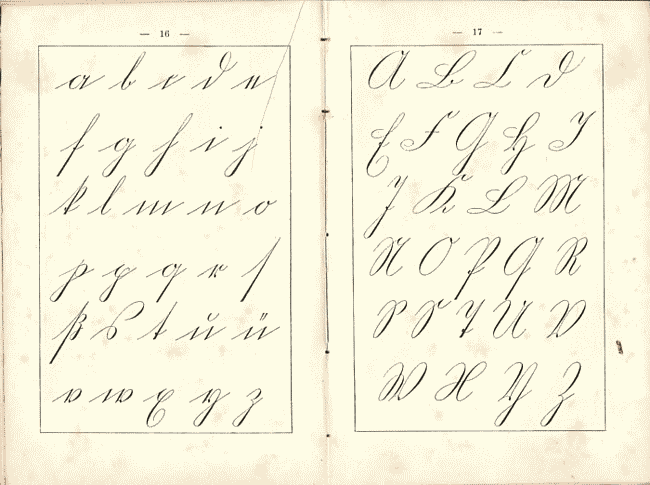 — 16 —
a b c d e
f g h i j
k l m n o
p p q r ſ
ß s t ŭ ü
v w x y z
— 17 —
A B C D
E F G H I
J K L M
N O P Q R
S S T U V
W X Y Z